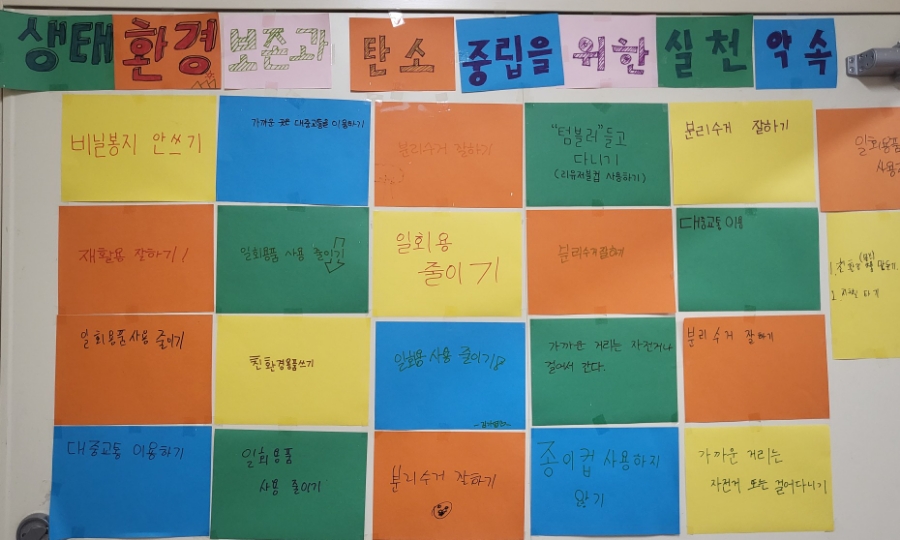 생태 환경 보존과 탄소 중립을 위한 실천 약속
비닐봉지 안쓰기
가까운 대중교통을 이용하기
분리수거 잘하기
"텀블러"들고
다니기
(리유저블컵 사용하기)
분리수거 잘하기
일회용품
재활용 잘하기!
일회용품 사용 줄이기
일회용
줄이기
분리수거잘하기
대중교통 이용
일회용품사용 줄이기
친환경용품쓰기
일회용 사용 줄이기
가까운 거리는 자전거나
걸어서 간다.
분리수거 잘하기
대중교통 이용하기
일회용품
사용 줄이기
분리수거 잘하기
종이컵 사용하지
않기
가까운 거리는
자전거 또는 걸어다니기